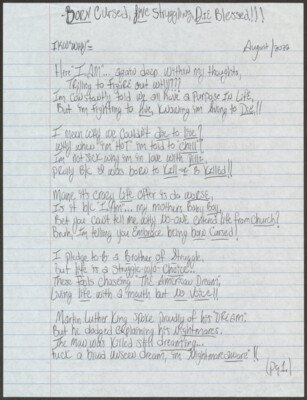 Born Cursed, Live Struggling, Die Blessed!!!
August/2022
Here "I AM"... again deep within my thoughts,
Trying to figure out why???
I'm constantly told we all have a Purpose in Life,
But I'm fighting to live, knowing I'm dying to Die!!
I mean why we couldn't die to live?
Why when "I'm HOT" I'm told to chill?
I'm not sick why I'm in love with Pills,
Maybe it's crazy Life offer is do worse,
Is it b/c "I Am"... my mothers Baby Boy,
Bet you can't tell me why No-one enters life from Church?
Bruh, I'm telling you Embrace being born Cursed!
I pledge to be a Brother of Struggle,
But life is a Struggle w/o Choice...
These fools chasing The American Dream,
Living life with a mouth but No Voice!!
Martin Luther King spoke proudly of his DREAM:
But he dodged explaining his Nightmares.
The Man was killed still dreaming...
Fuck a blind unseen dream, I'm Nightmare aware"!!
(Pg 1)